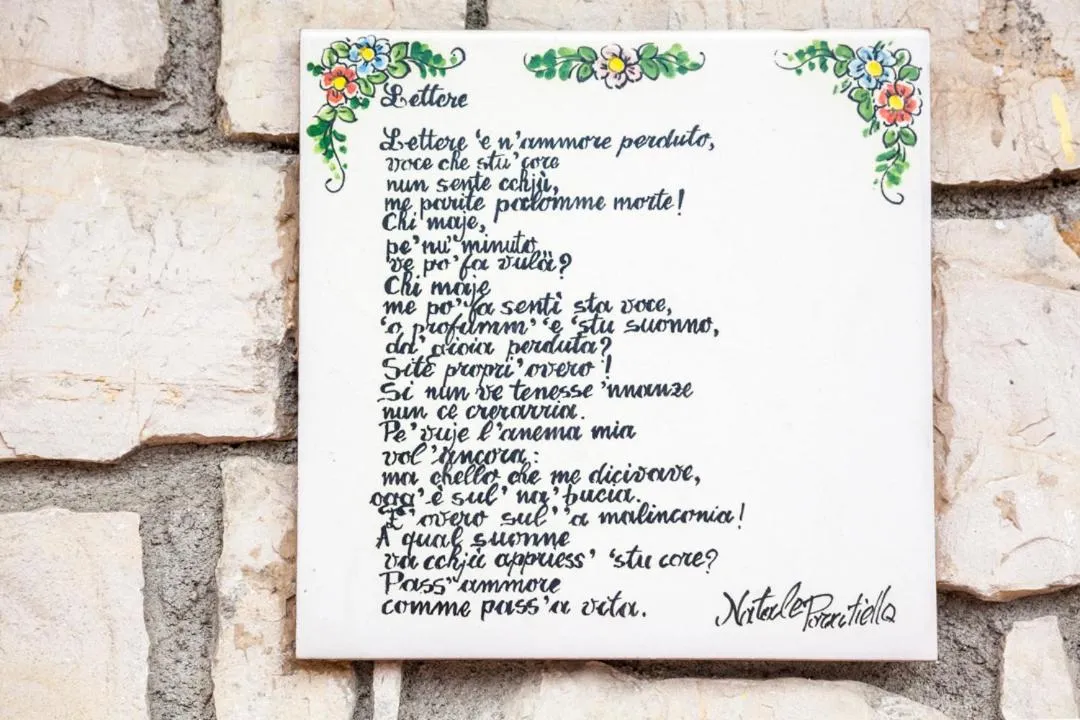 Lettere
Lettere 'e n'ammore perduto,
voce che stu' core
nun sente cchjù,
me parite palomme morte!
Chi maje,
pe' nu' minuto
ve po' fa vulà?
Chi maje
me po' fa sentì sta voce,
'o profumm' 'e 'stu suonno,
da' gioia perduta?
Site propri' overo!
Si nun ve tenesse 'nnanze
nun ce crerarria.
Pe' vuje l'anema mia
vol' ancora:
ma chello che me dicivave,
ogg' è sul' na' bucia.
E' overo sul' 'a malinconia!
A qual suonne
va cchjù appriess' 'stu core?
Pass' ammore
comme pass' a vita.
Natale